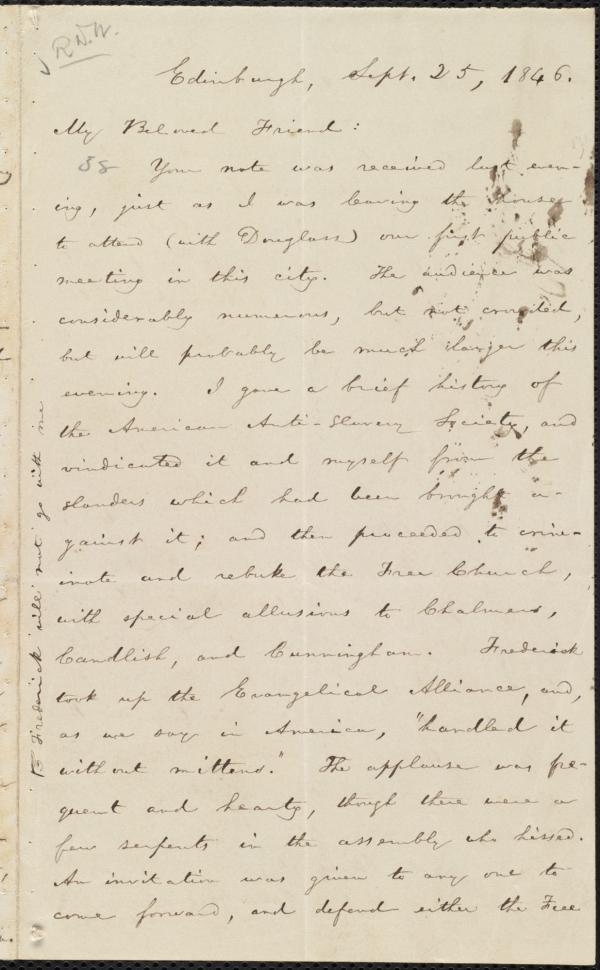 R.D.W.
Edinburgh, Sept. 25, 1846.
My Beloved Friend:
38 Your note was received last even-
ing, just as I was leaving the house
to attend (with Douglass) our first public
meeting in this city. The audience was
considerably numerous, but not crowded,
but will probably be much larger this
evening. I gave a brief history of
the American Anti-Slavery Society, and
vindicated it and myself from the
slanders which had been brought a-
gainst it; and then proceeded to crim-
inate and rebuke the Free Church,
with special allusions to Chalmers,
Candlish, and Cunningham. Frederick
took up the Evangelical Alliance, and,
as we say in America, "handled it
without mittens." The applause was fre-
quent and hearty, though there were a
few serpents in the assembly who hissed.
An invitation was given to any one to
come forward, and defend either the Free
Frederick will not go with me